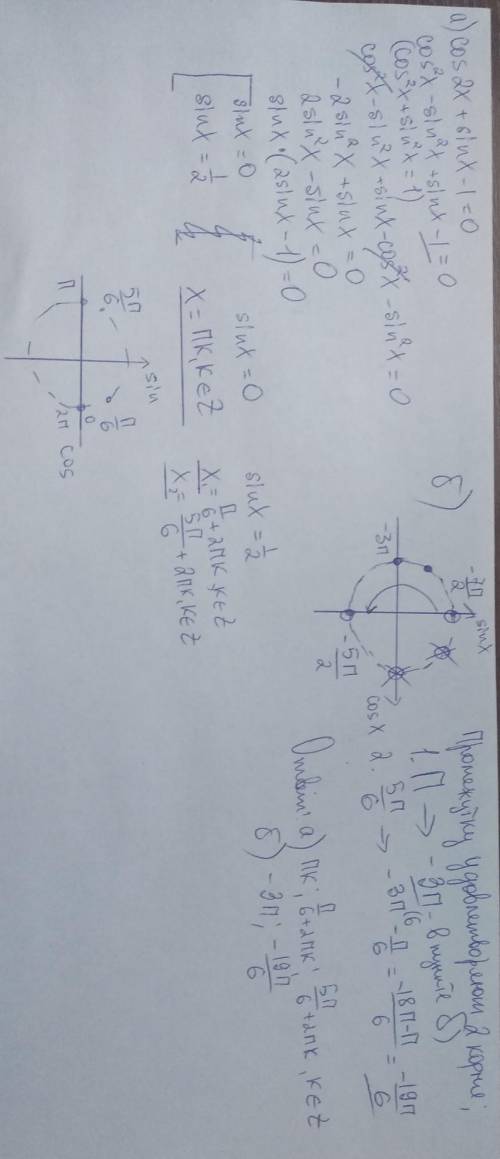 а) cos2x + sinx - 1 = 0
cos²x - sin²x + sinx - 1 = 0
(cos²x + sin²x = 1)
cos²x - sin²x + sinx - cos²x - sin²x = 0
-2sin²x + sinx = 0
2sin²x - sinx = 0
sinx · (2sinx - 1) = 0
sinx = 0
sinx = 1/2
sinx = 0
x = πk, k∈Z
sinx = 1/2
x₁ = π/6 + 2πk, k∈Z
x₂ = 5π/6 + 2πk, k∈Z
sin
5π/6
π/6
π
0
2π
cos
б)
sinx
-7π/2
-3π
cosx
-5π/2
Промежутку удовлетворяют 2 корня:
1. π → -3π - в пункте б)
2. 5π/6 → -3π\6 - π/6 = -18π-π/6 = -19π/6
Ответ: а) πk; π/6 + 2πk; 5π/6 + 2πk, k∈Z
б) -3π; -19π/6